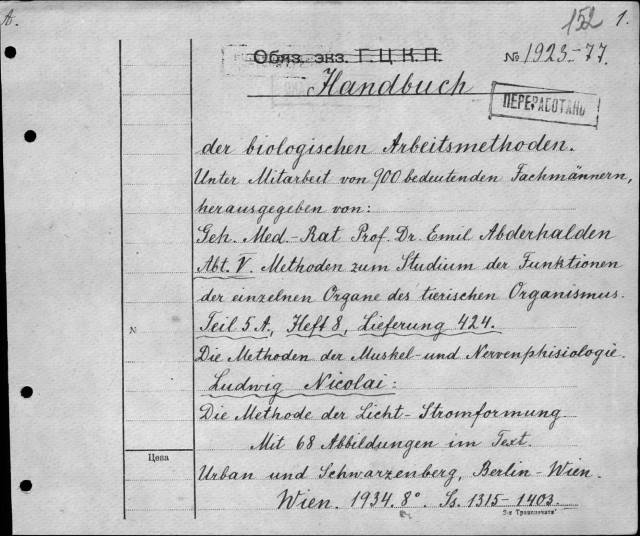 A.
152
1.
Обяз. экз. Г.Ц.К.П.
№ 1923-77.
Handbuch
ПЕРЕРАБОТАНО
der biologischen Arbeitsmethoden.
Unter Mitarbeit von 900 bedeutenden Fachmännern,
herausgegeben von:
Geh. Med.-Rat Prof. Dr. Emil Abderhalden
Abt. V. Methoden zum Studium der Funktionen
der einzelnen Organe des tierischen Organismus.
N Teil 5 A, Heft 8, Lieferung 424.
Die Methoden der Muskel- und Nervenphisiologie.
Ludwig Nicolai:
Die Methode der Licht-Stromformung.
Mit 68 Abbildungen im Text.
Цена
Urban und Schwarzenberg, Berlin-Wien.
Wien. 1934. 8°. Ss. 1315-1403.